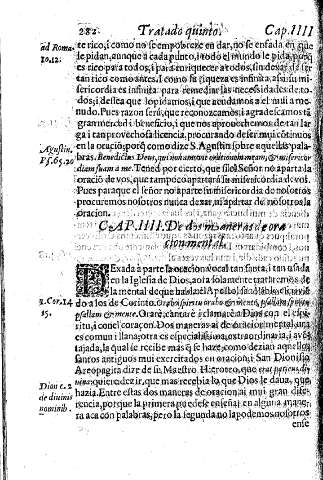 282 Tratado quinto. Cap. IIII
ad Roma. 10.12.
te rico, i como no se empobrece en dar, no se enfada en que
le pidan, aunque a cada punto, i todo el mundo le pida, porq̃
es rico para todos, i para enriquecer a todos, sin dexar de ser
tan rico como antes. I como su riqueza es infinita, assi su mi-
sericordia es infinita para remediar las necessidades de to-
dos, i dessea que lo pidamos, i que acudamos a el mui a me-
nudo. Pues razon serà, que reconozcamos, i agradescamos tã
gran merced i beneficio, i que nos aprovechemos de tan lar
ga i tan provechosa licencia, procurando de ser mui cõtinuos
Agustin. Ps. 65.20
en la oracion, porq̃ como dize S. Agustin sobre aquellas pala
bras. Benedictus Deus, qui non amovit orationem meam, & misericor
diam suam a me. Tened por cierto, que si el Señor no aparta la
oraciõ de vos, que tampoco apartarà su misericordia de vos.
Pues paraque el señor no aparte su misericordia de nosotros
procuremos nosotros nunca dexar, ni apartar de nosotros la
oracion.
CAP. IIII. De dos maneras de ora
cion mental.
DExada à parte la oraciõ vocal tan santa, i tan usada
en la Iglesia de Dios, aora solamente trataremos de
la mental de que habla el Apostol san
1. Cor. 14 15.
do a los de Corinto. Orabo spiritu orabo & mente, psallam spiritu
psallam & mente. Orarè, cantarè i clamarè a Dios con el espi-
ritu, i con el coraçon. Dos maneras ai de oraciõ mental, una
es comun i llana, otra es especialissima, extraordinaria, i avẽ-
tajada, la qual se recibe mas q̃ se haze, como dezian aquellos
santos antiguos mui exercitados en oraciõ, i San Dionisio
Areopagita dize de su Maestro Hieroteo, que erat patiens di
Dion c. 2 de divinis nominib.
vina quiere dezir, que mas recebia lo que Dios le dava, que
hazia. Entre estas dos maneras de oracion ai mui gran dife-
rencia, porque la primera puedese enseñar en alguna mane-
ra acà con palabras, pero la segunda no la podemos nosotros
ense